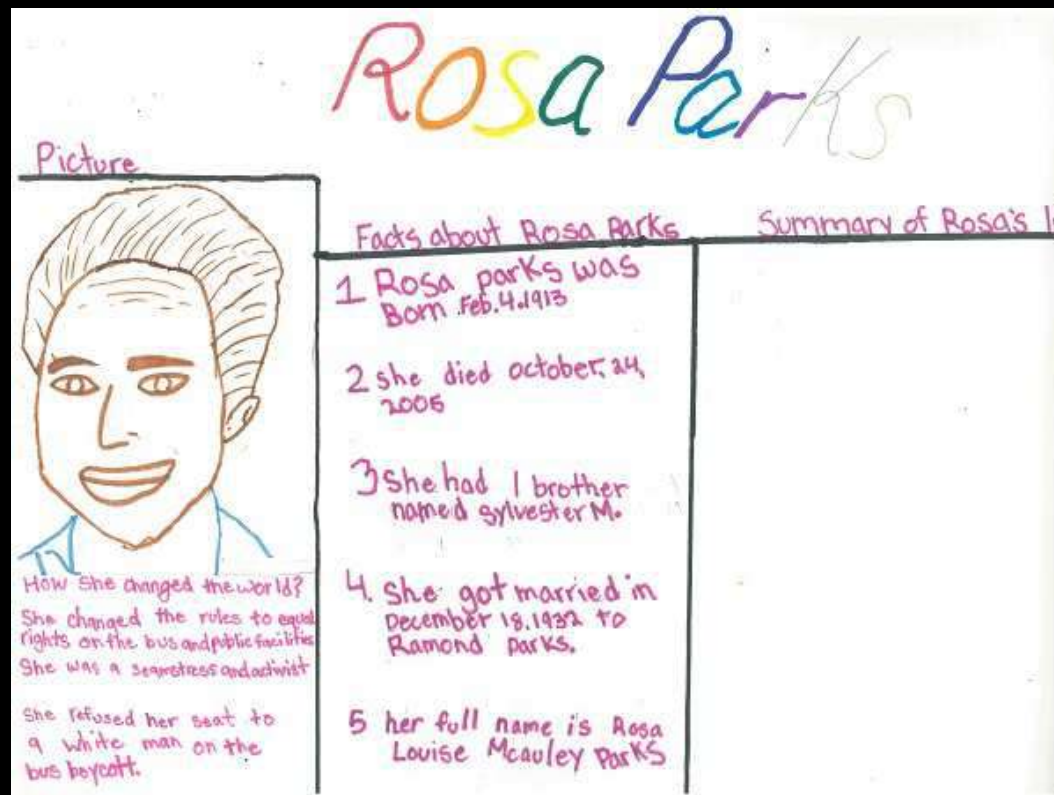 Rosa Parks
Picture
How She changed the world?
She changed the rules to equal
rights on the bus and public facilities
She was a seamstress and activist
She refused her seat to
a white man on the
bus boycott.
Facts about Rosa Parks
1 Rosa parks was
Born Feb.4.1913
2 she died october, 24,
2005
3 She had 1 brother
named sylvester M.
4. She got married in
December 18.1932 to
Ramond parks.
5 her full name is Rosa
Louise Mcauley Parks
Summary of Rosa's